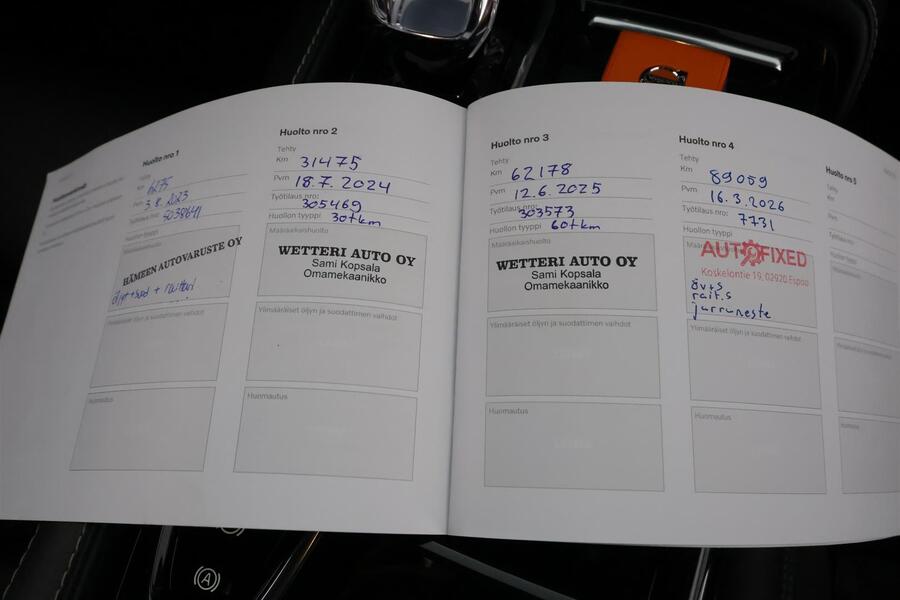 Huolto nro 1
Km 6275
Pvm 3.8.2023
Huollon tyyppi
Määräaikaishuolto
HÄMEEN AUTOVARUSTE OY
Ylimääräiset öljyn ja suodattimen vaihdot
Huomautus
Huolto nro 2
Tehty
Km 31475
Pvm 18.7.2024
Työtilaus nro:
305469
Huollon tyyppi 30tkm
Määräaikaishuolto
WETTERI AUTO OY
Sami Kopsala
Omamekaanikko
Ylimääräiset öljyn ja suodattimen vaihdot
Huomautus
Huolto nro 3
Tehty
Km 62178
Pvm 12.6.2025
Työtilaus nro:
303573
Huollon tyyppi 60tkm
Määräaikaishuolto
WETTERI AUTO OY
Sami Kopsala
Omamekaanikko
Ylimääräiset öljyn ja suodattimen vaihdot
Huomautus
Huolto nro 4
Tehty
Km 89059
Pvm 16.3.2026
Työtilaus nro: 7731
Huollon tyyppi
AUTOFIXED
Koskelontie 19, 02920 Espoo
öv+s
rait.s
jarruneste
Ylimääräiset öljyn ja suodattimen vaihdot
Huomautus
Huolto nro 5
Tehty
Km
Pvm
Työtilaus nro:
Huollon tyyppi
A